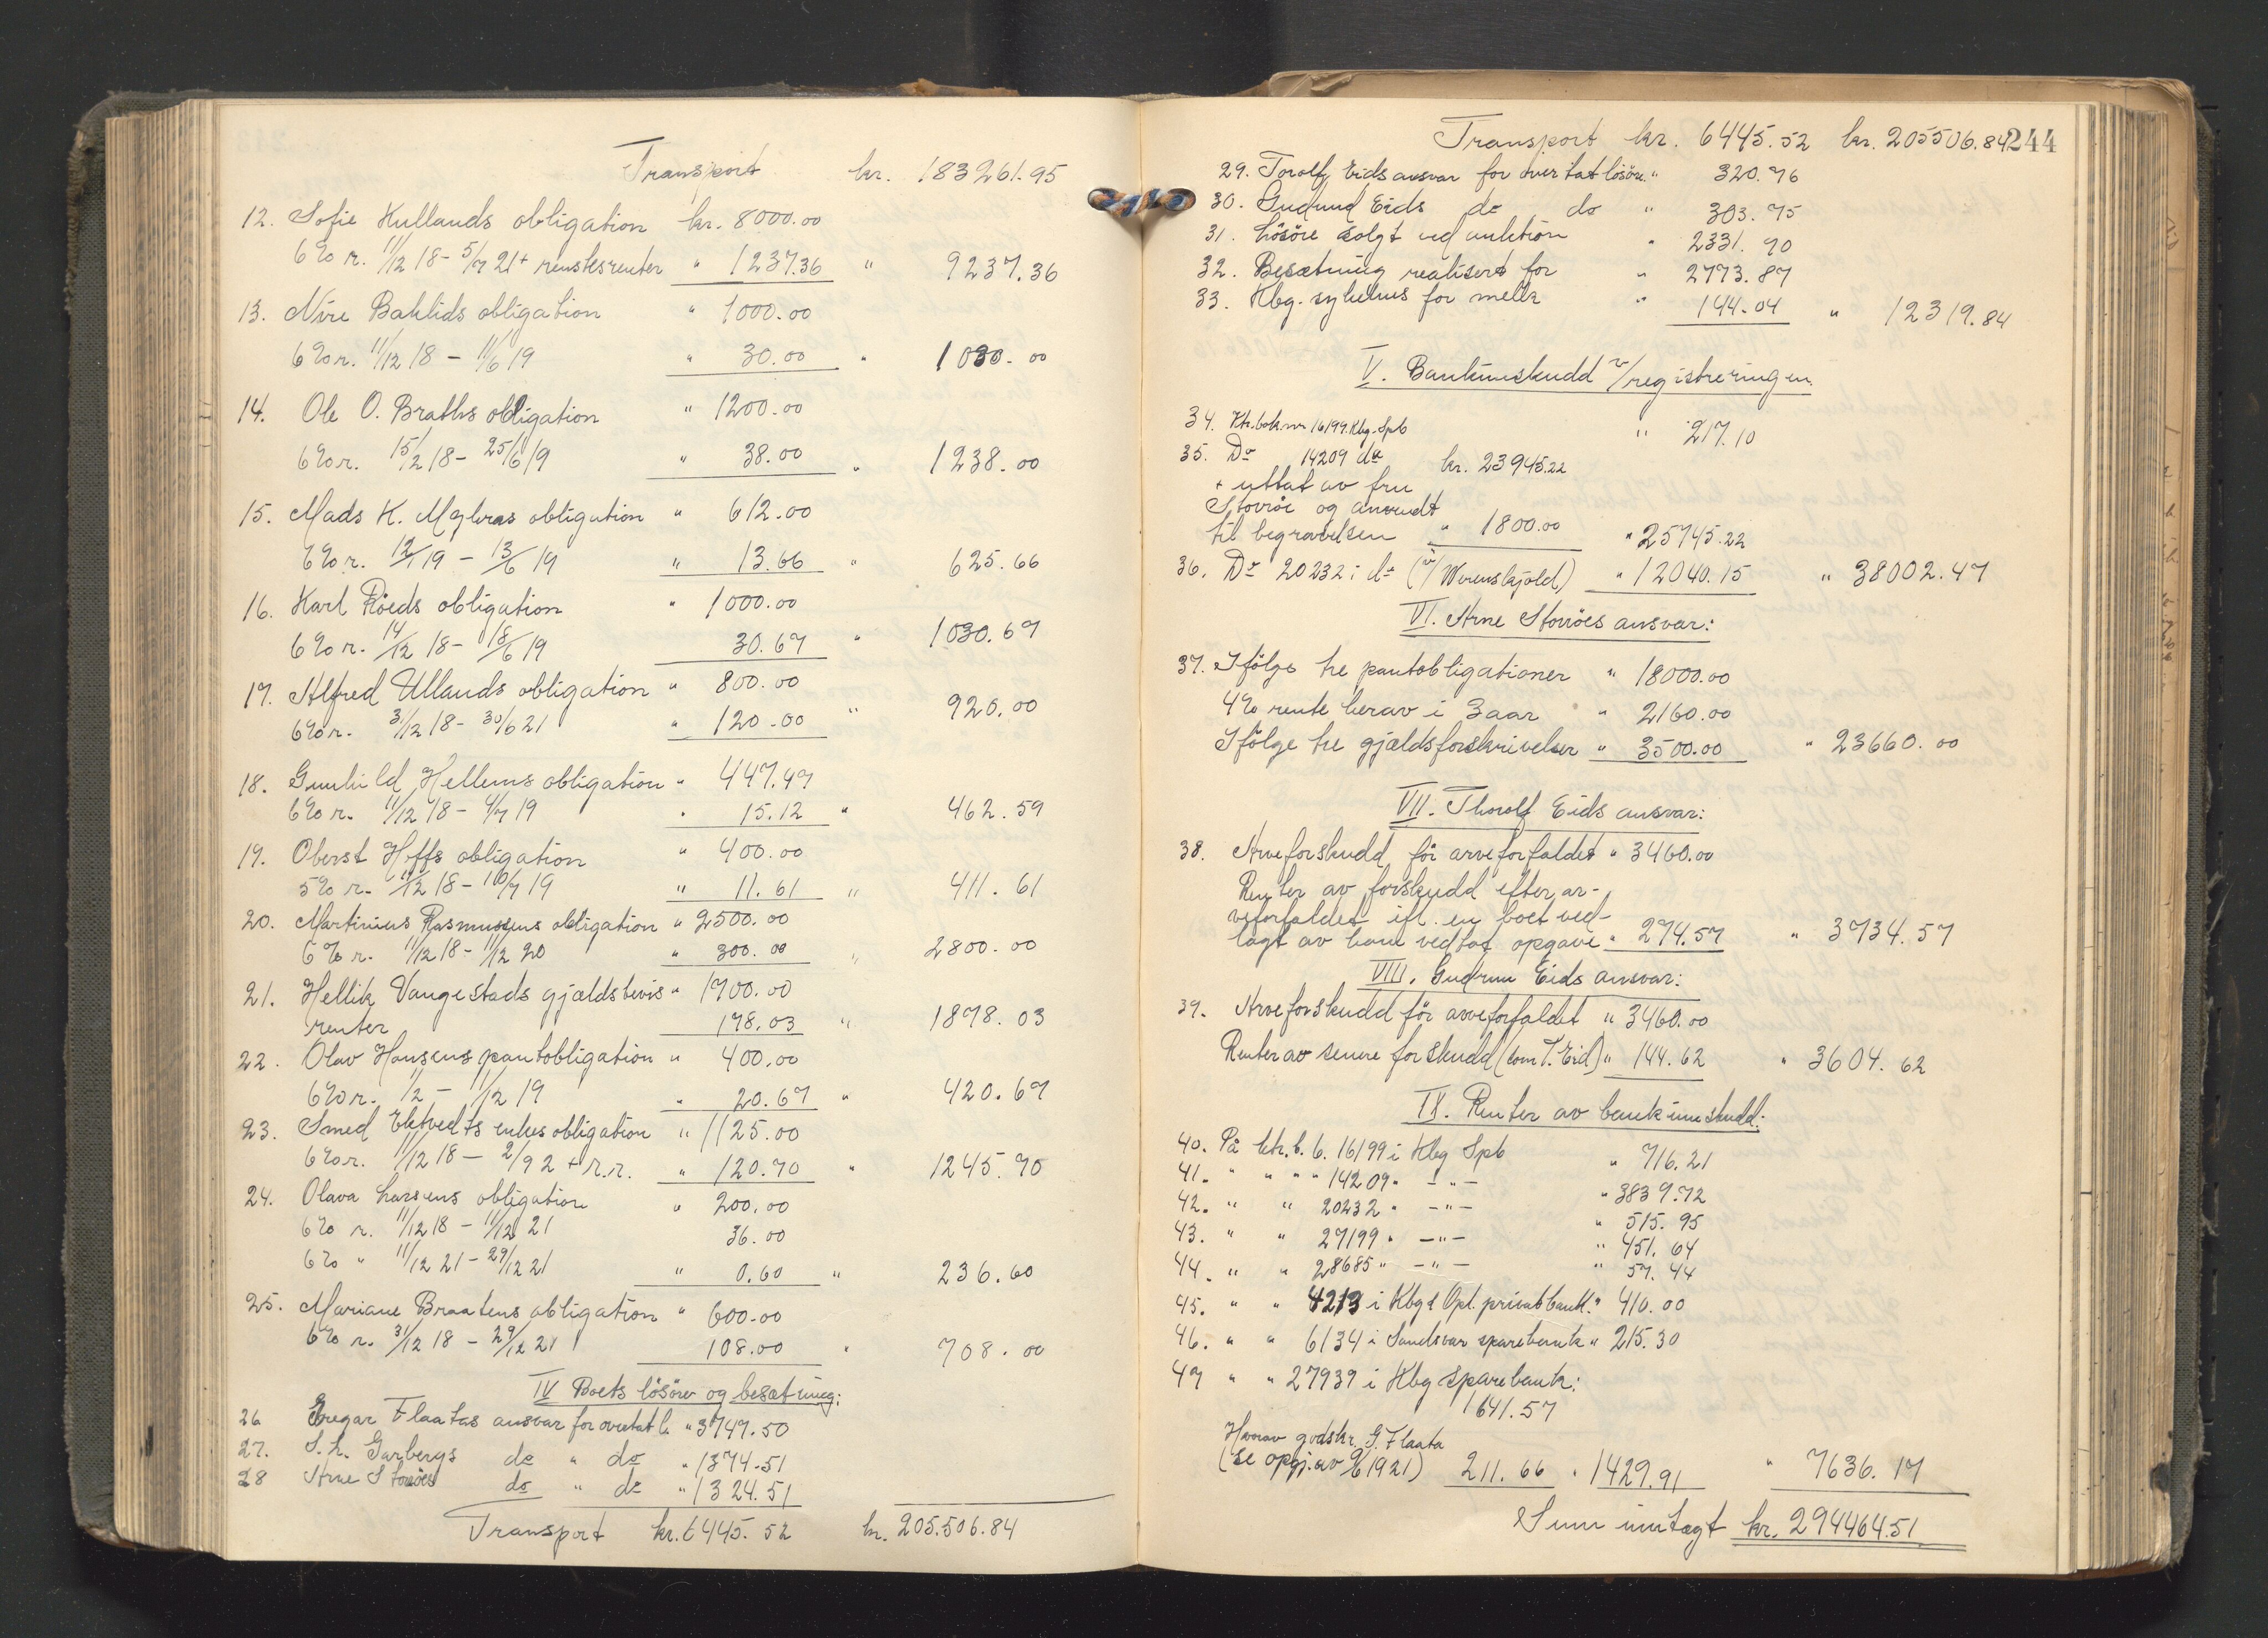 Transport kr. 183261.95
12. Sofie Hullands obligation kr. 8000.00
6% r. 11/12 18 - 5/7 21 + rentesrenter " 1237.36 " 9237.36
13. Nire Baklids obligation " 1000.00
6% r. 11/12 18 - 11/6 19 " 30.00 " 1030.00
14. Ole O. Braths obligation " 1200.00
6% r. 15/12 18 - 25/6 19 " 38.00 " 1238.00
15. Mads K. obligation " 612.00
6% r. 12/1 19 - 13/6 19 " 13.66 " 625.66
16. Karl Röeds obligation " 1000.00
6% r. 14/12 18 - 18/6 19 30.67 " 1030.67
17. Alfred Ullands obligation " 800.00
6% r. 31/12 18 - 30/6 21 " 120.00 " 920.00
18. Gunhild Hellems obligation " 447.47
6% r. 11/12 18 - 4/7 19 " 15.12 " 462.59
19. Oberst Hoffs obligation " 400.00
5% r. 11/12 18 - 10/7 19 " 11.61 " 411.61
20. Martinius Rasmussens obligation " 2500.00
6% r. 11/12 18 - 11/12 20 " 300.00 " 2800.00
21. Hellik Vangestads gjældsbevis " 1700.00
renter 178.03 " 1878.03
22. Olav Hansens pantobligation " 400.00
6% r. 1/2 - 11/12 19 " 20.67 " 420.67
23. Smed Ektvedts enkes obligation " 1125.00
6% r. 11/12 18 - 2/9 2 + r.r. " 120.70 " 1245.70
24. Olava Larsens obligation " 200.00
6% r. 11/12 18 - 11/12 21 36.00
6% " 11/12 21 - 29/12 21 " 0.60 " 236.60
25. Mariane Braatens obligation " 600.00
6% r. 31/12 18 - 29/12 21 108.00 " 708.00
IV Boets lösöre og besætning:
26 Gregar Flaatas ansvar for overtat l. " 3747.50
27. S. L. Garbergs do " do " 1374.51
28 Arne Storröes do " do " 1324.51
Transport kr. 6445.52 kr. 205.506.84
Transport kr. 6445.52 kr. 205506.84 244
29. Torolf Eids ansvar for overtat lösöre " 320.76
30. Gudrund Eids do do " 303.75
31. Lösöre solgt ved auktion " 2331.90
32. Besætning realisert for " 2773.87
33. Kbg. sykehus for melk " 144.04 " 12319.84
V. Bankinnskudd v/registreringen.
34. Ktr.bok nr 16199 Kbg. Spb " 217.10
35. Do 14209 do kr. 23945.22
+ uttat av fru
Storröe og anvendt
til begravelsen " 1800.00 " 25745.22
36. Do 20232 i do (v/Werenskjold) " 12040.15 " 38002.47
VI. Arne Storröes ansvar:
37. Ifölge tre pantobligationer " 18000.00
4% rente herav i 3 aar " 2160.00
Ifölge tre gjældsforskrivelser " 3500.00 " 23660.00
VII. Thorolf Eids ansvar:
38. Arveforskudd för arveforfaldet " 3460.00
Renter av forskudd efter ar-
veforfaldet ifl. en boet ved-
lagt av ham vedtat opgave " 274.57 " 3734.57
VIII. Gudrun Eids ansvar:
39. Arveforskudd för arveforfaldet " 3460.00
Renter av senere forskudd (som T. Eid) " 144.62 " 3604.62
IX. Renter av bankinnskudd:
40. På ktr. b. 6. 16199 i Kbg Spb " 716.21
41. " " " " 14209 " - " - " 3839.72
42. " " 20232 " - " - " 515.95
43. " " 27199 " - " - " 451.64
44. " " 28685 " - " - " 57.44
45. " " 4213 i Kbg & Opl. privatbank. " 410.00
46. " " 6134 i Sandsvær sparebank " 215.30
47 " " 27939 i Kbg sparebank:
1641.57
Herav godskr. G. Flaata
(se opgj. av 9/6 1921) 211.66 " 1429.91 " 7636.17
Sum inntægt kr. 294464.51